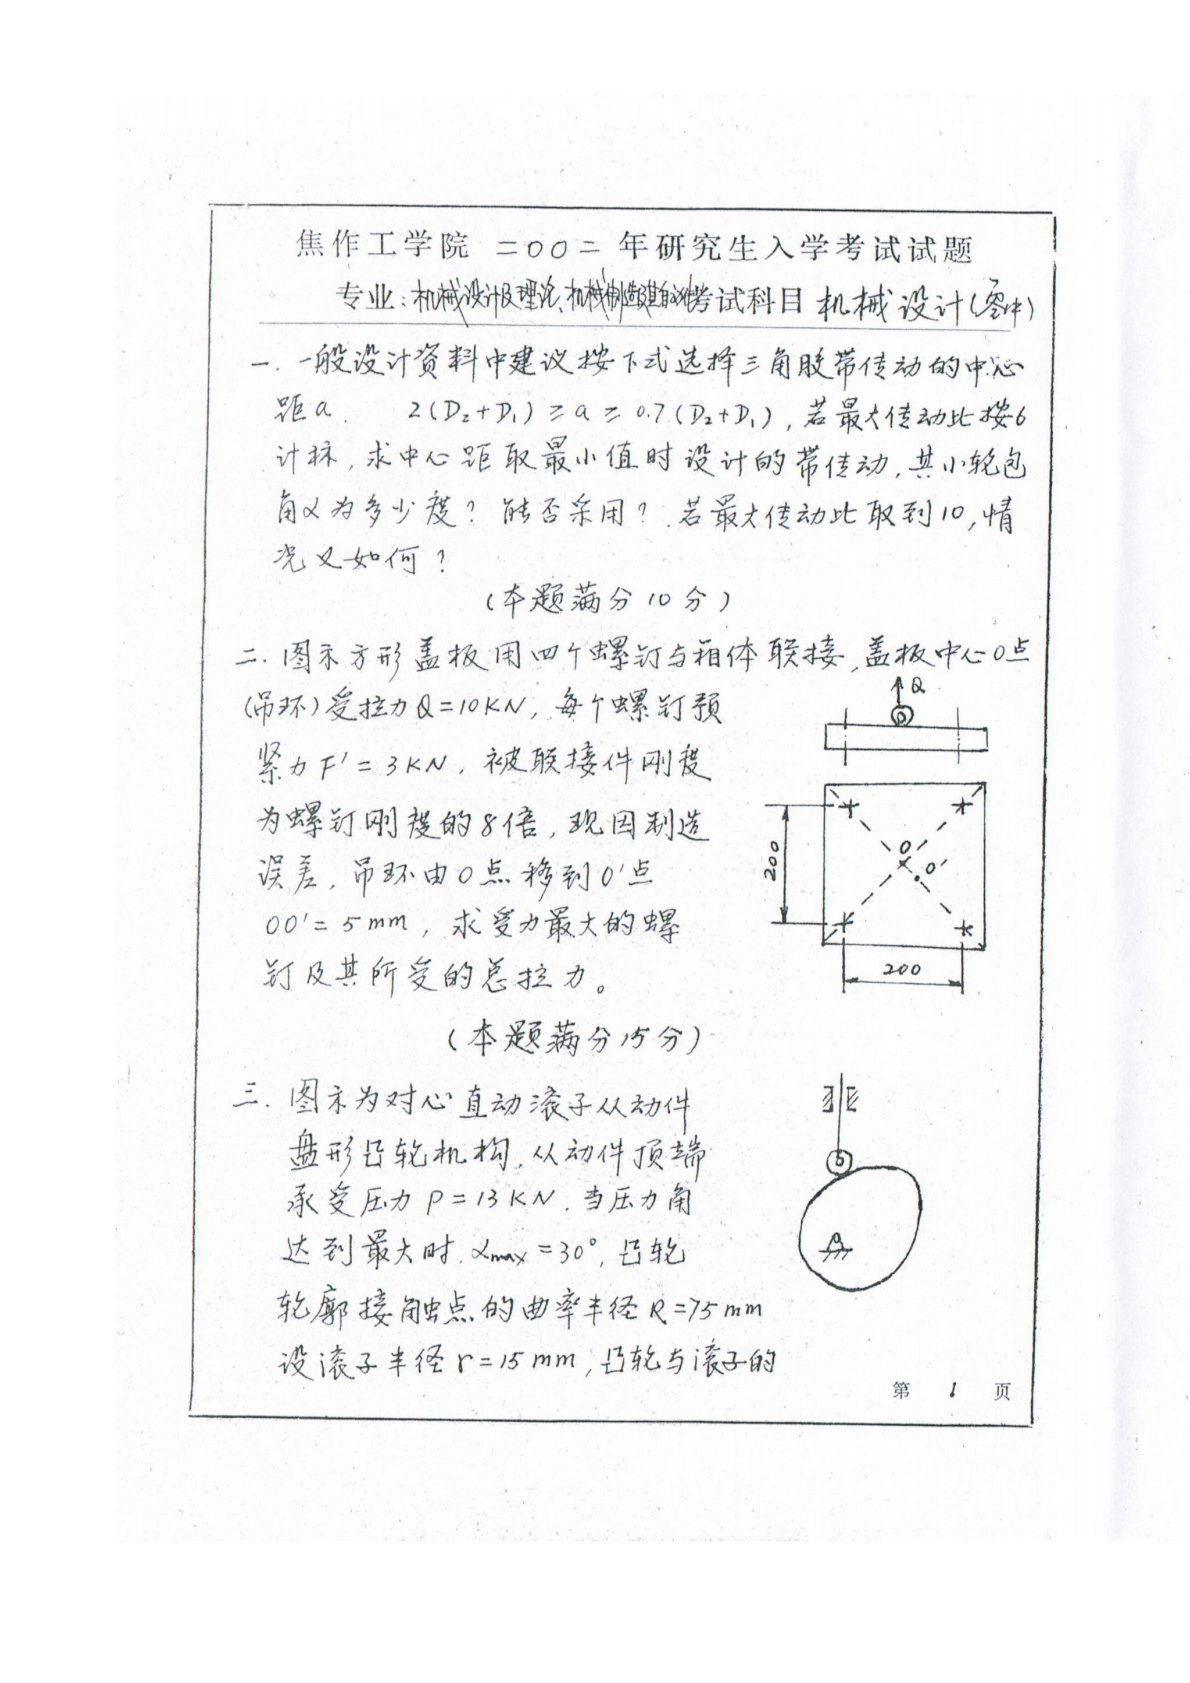 焦作工学院 二00二 年研究生入学考试试题
专业:机械设计及理论、机械制造及其自动化考试科目 机械设计(
一. 一般设计资料中建议按下式选择三角胶带传动的中心
距a. 2(D₂+D₁)≥a≥0.7(D₂+D₁),若最大传动比按6
计标,求中心距取最小值时设计的带传动,其小轮包
角α为多少度?能否采用?若最大传动比取到10,情
况又如何?
(本题满分10分)
二. 图示方形盖板用四个螺钉与箱体联接,盖板中心O点
(吊环)受拉力Q=10KN,每个螺钉预
紧力F'=3KN,被联接件刚度
为螺钉刚度的8倍,现因制造
误差,吊环由O点移到O'点
OO'=5mm,求受力最大的螺
钉及其所受的总拉力。
(本题满分15分)
Q
200
O
O'
200
三. 图示为对心直动滚子从动件
盘形凸轮机构,从动件顶端
承受压力P=13KN.当压力角
达到最大时.αmax=30°,凸轮
轮廓接触点的曲率半径R=75mm
设滚子半径r=15mm,凸轮与滚子的
第 1 页